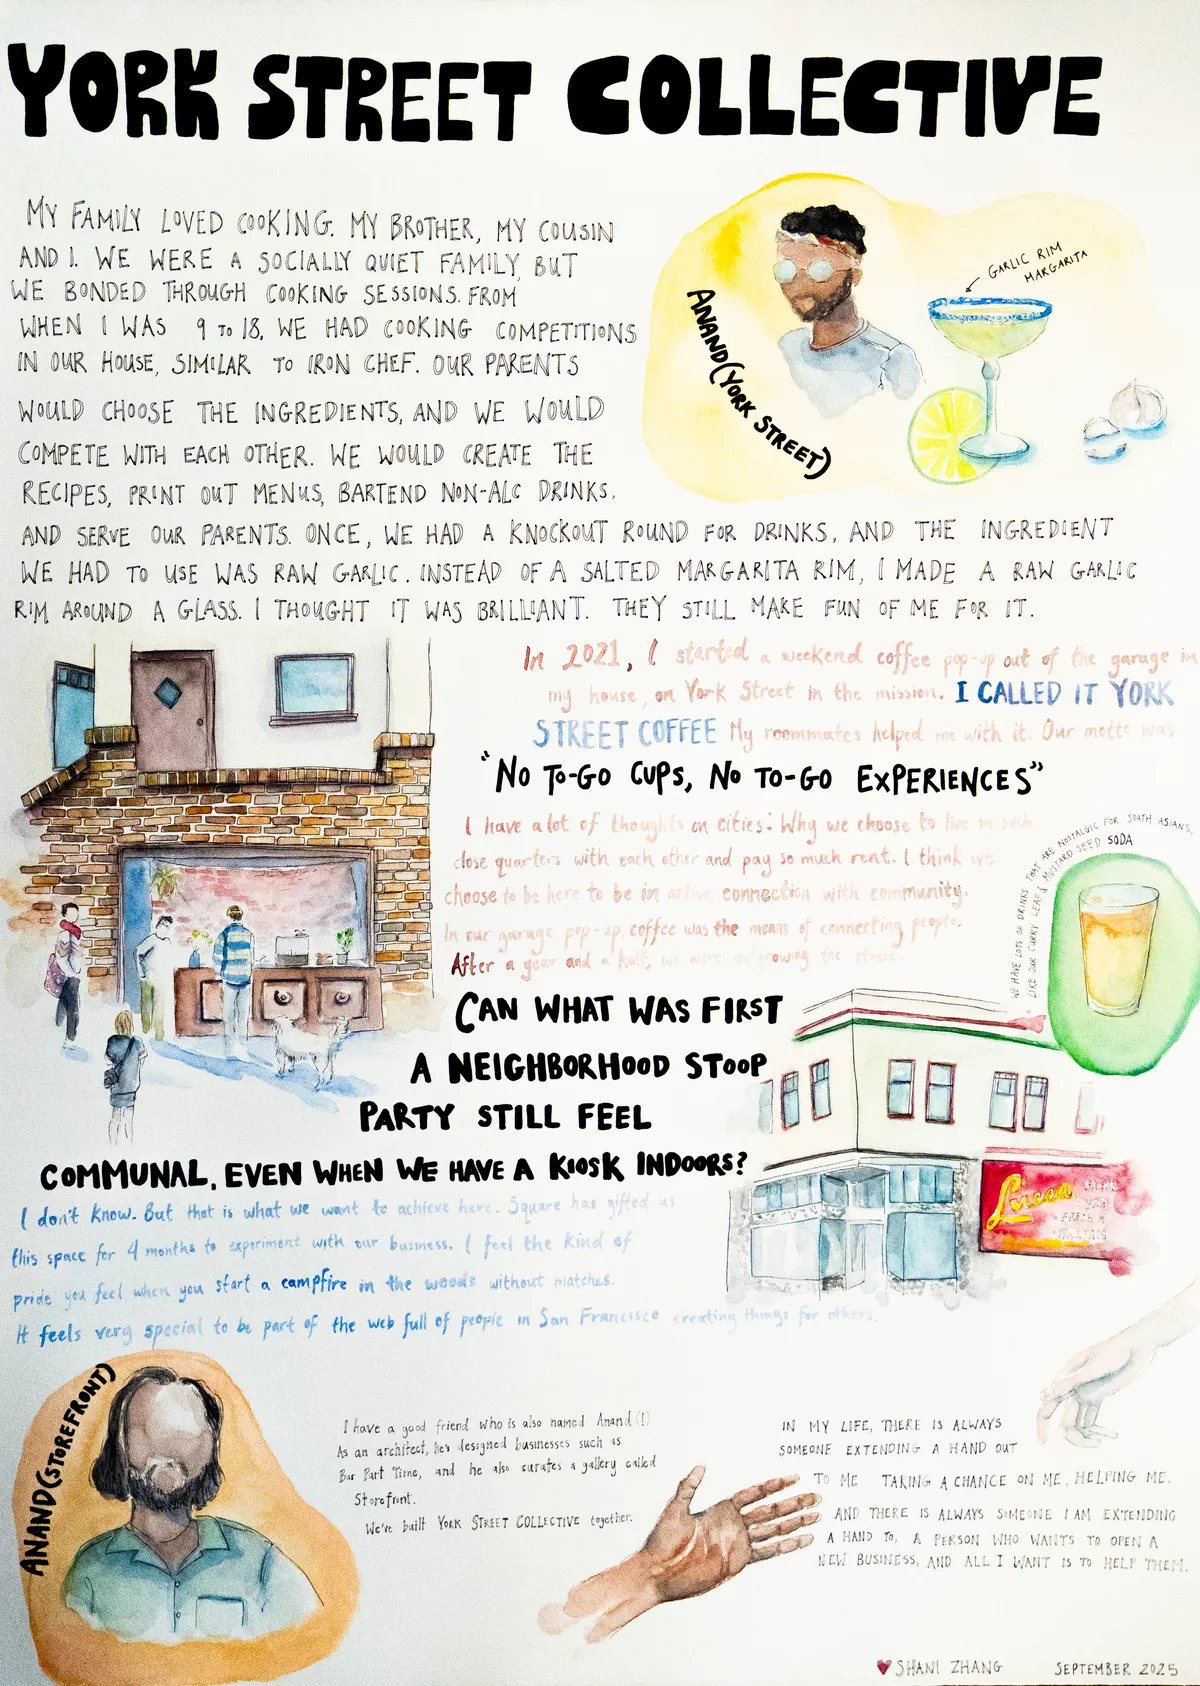 YORK STREET COLLECTIVE
MY FAMILY LOVED COOKING. MY BROTHER, MY COUSIN
AND I. WE WERE A SOCIALLY QUIET FAMILY, BUT
WE BONDED THROUGH COOKING SESSIONS. FROM
WHEN I WAS 9 TO 18, WE HAD COOKING COMPETITIONS
IN OUR HOUSE, SIMILAR TO IRON CHEF. OUR PARENTS
WOULD CHOOSE THE INGREDIENTS, AND WE WOULD
COMPETE WITH EACH OTHER. WE WOULD CREATE THE
RECIPES, PRINT OUT MENUS, BARTEND NON-ALC DRINKS,
AND SERVE OUR PARENTS. ONCE, WE HAD A KNOCKOUT ROUND FOR DRINKS, AND THE INGREDIENT
WE HAD TO USE WAS RAW GARLIC. INSTEAD OF A SALTED MARGARITA RIM, I MADE A RAW GARLIC
RIM AROUND A GLASS. I THOUGHT IT WAS BRILLIANT. THEY STILL MAKE FUN OF ME FOR IT.
ANAND (YORK STREET)
GARLIC RIM
MARGARITA
In 2021, I started a weekend coffee pop-up out of the garage in
my house, on York Street in the mission. I CALLED IT YORK
STREET COFFEE My roommates helped me with it. Our motto was
"NO TO-GO CUPS, NO TO-GO EXPERIENCES"
I have a lot of thoughts on cities: Why we choose to live in such
close quarters with each other and pay so much rent. I think we
choose to be here to be in active connection with community.
In our garage pop-up, coffee was the means of connecting people.
After a year and a half, we were outgrowing the street.
WE HAVE LOTS OF DRINKS THAT ARE NOSTALGIC FOR SOUTH ASIANS,
LIKE OUR CURRY LEAF & MUSTARD SEED SODA
CAN WHAT WAS FIRST
A NEIGHBORHOOD STOOP
PARTY STILL FEEL
COMMUNAL, EVEN WHEN WE HAVE A KIOSK INDOORS?
Lucca
I don't know. But that is what we want to achieve here. Square has gifted us
this space for 4 months to experiment with our business. I feel the kind of
pride you feel when you start a campfire in the woods without matches.
It feels very special to be part of the web full of people in San Francisco creating things for others.
ANAND (STOREFRONT)
I have a good friend who is also named Anand (!)
As an architect, he's designed businesses such as
Bar Part Time, and he also curates a gallery called
Storefront.
We've built YORK STREET COLLECTIVE together.
IN MY LIFE, THERE IS ALWAYS
SOMEONE EXTENDING A HAND OUT
TO ME TAKING A CHANCE ON ME, HELPING ME.
AND THERE IS ALWAYS SOMEONE I AM EXTENDING
A HAND TO, A PERSON WHO WANTS TO OPEN A
NEW BUSINESS, AND ALL I WANT IS TO HELP THEM.
SHANI ZHANG SEPTEMBER 2025